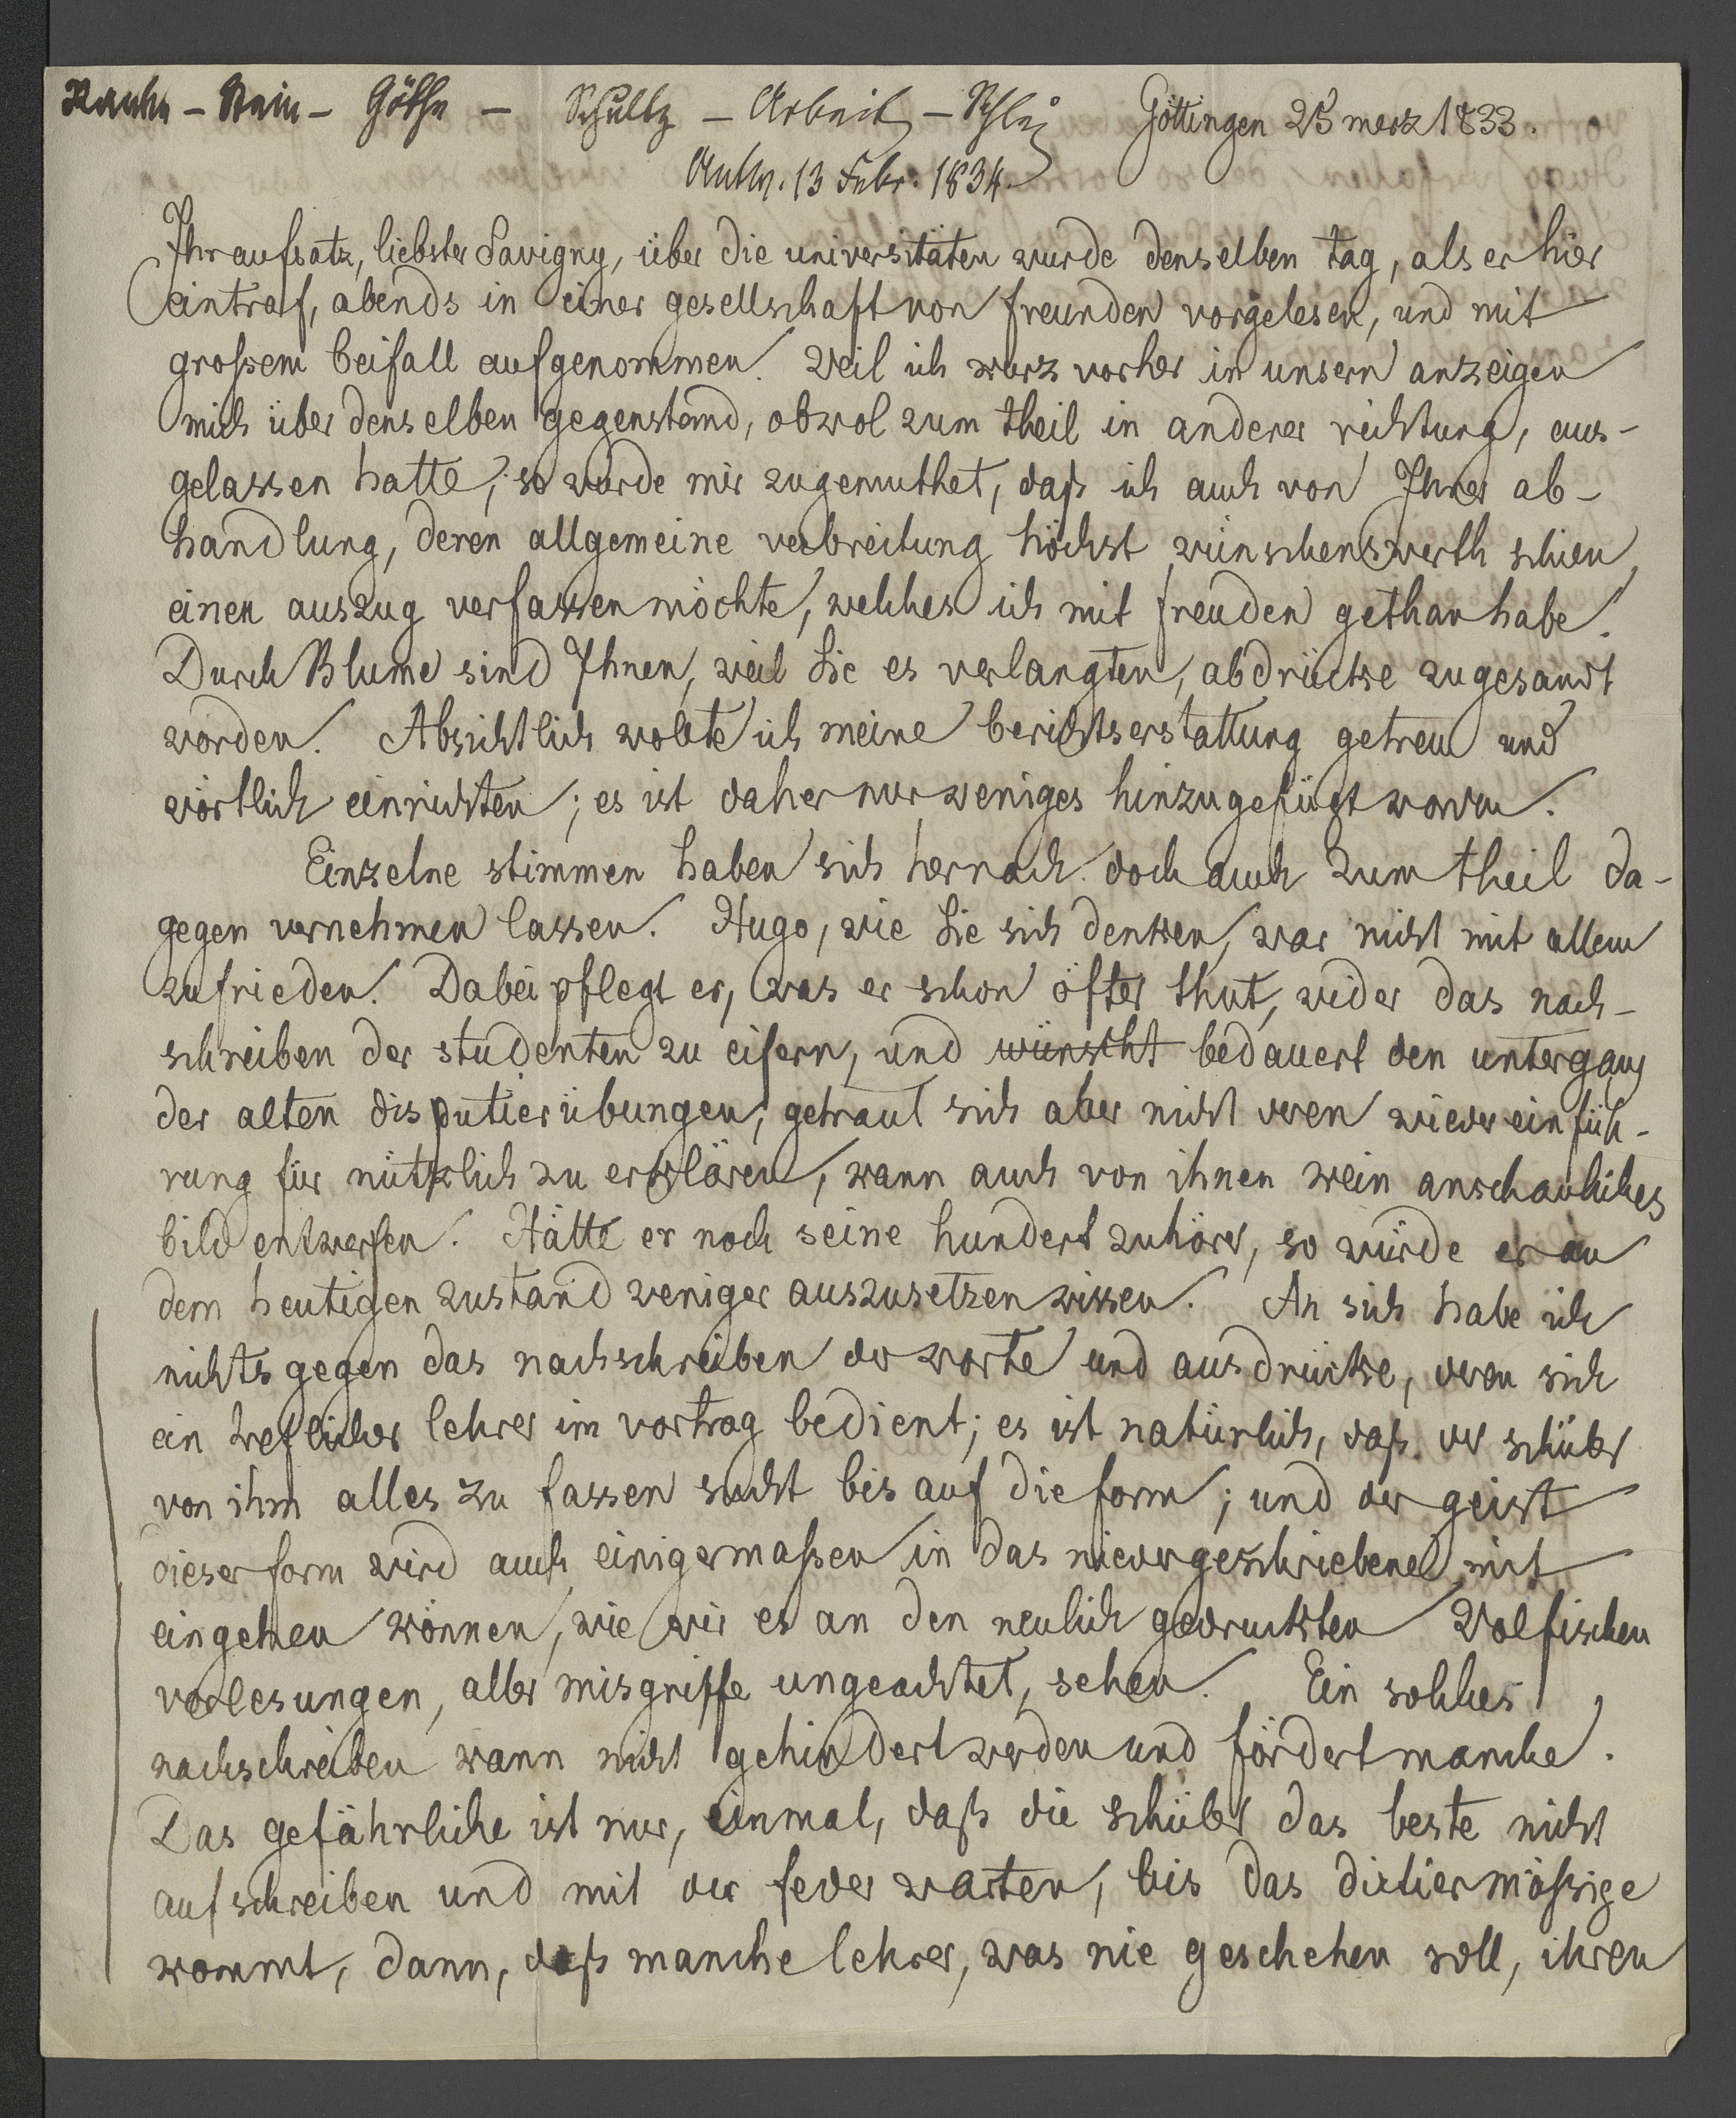 Ranke - Stein - Göthe - Schultz - Arbeit - Göttingen 25 merz 1833.
Antw. 13 Febr. 1834.
Ihr aufsatz, liebster Savigny, über die universitäten wurde denselben tag, als er hier
eintraf, abends in einer gesellschaft von freunden vorgelesen, und mit
großem beifall aufgenommen. Weil ich kurz vorher in unsern anzeigen
mich über denselben gegenstand, obwol zum theil in anderer richtung, aus-
gelassen hatte, so wurde mir zugemuthet, daß ich auch von Ihrer ab-
handlung, deren allgemeine verbreitung höchst wünschenswerth schien,
einen auszug verfassen möchte, welches ich mit freuden gethan habe.
Durch Blume sind Ihnen, weil Sie es verlangten, abdrücke zugesandt
worden. Absichtlich wollte ich meine berichtserstattung getreu und
wörtlich einrichten; es ist daher nur weniges hinzugefügt worden.
Einzelne stimmen haben sich hernach doch auch zum theil da-
gegen vernehmen lassen. Hugo, wie Sie sich denken, war nicht mit allem
zufrieden. Dabei pflegt er, was er schon öfter thut, wider das nach-
schreiben der studenten zu eifern, und wünscht bedauert den untergang
der alten disputierübungen, getraut sich aber nicht deren wiedereinfüh-
rung für nützlich zu erklären, kann auch von ihnen kein anschauliches
bild entwerfen. Hätte er noch seine hundert zuhörer, so würde er an
dem heutigen zustand weniger auszusetzen wissen. An sich habe ich
nichts gegen das nachschreiben der worte und ausdrücke, deren sich
ein trefflicher lehrer im vortrag bedient; es ist natürlich, daß der schüler
von ihm alles zu fassen sucht bis auf die form; und der geist
dieser form wird auch einigermaßen in das niedergeschriebene mit
eingehen können, wie wir es an den neulich gedruckten Wolfischen
vorlesungen, aller misgriffe ungeachtet, sehen. Ein solches
nachschreiben kann nicht gehindert werden und fördert manche.
Das gefährliche ist nur, einmal, daß die schüler das beste nicht
aufschreiben und mit der feder warten, bis das dictiermäßige
kommt, dann, daß manche lehrer, was nie geschehen soll, ihren